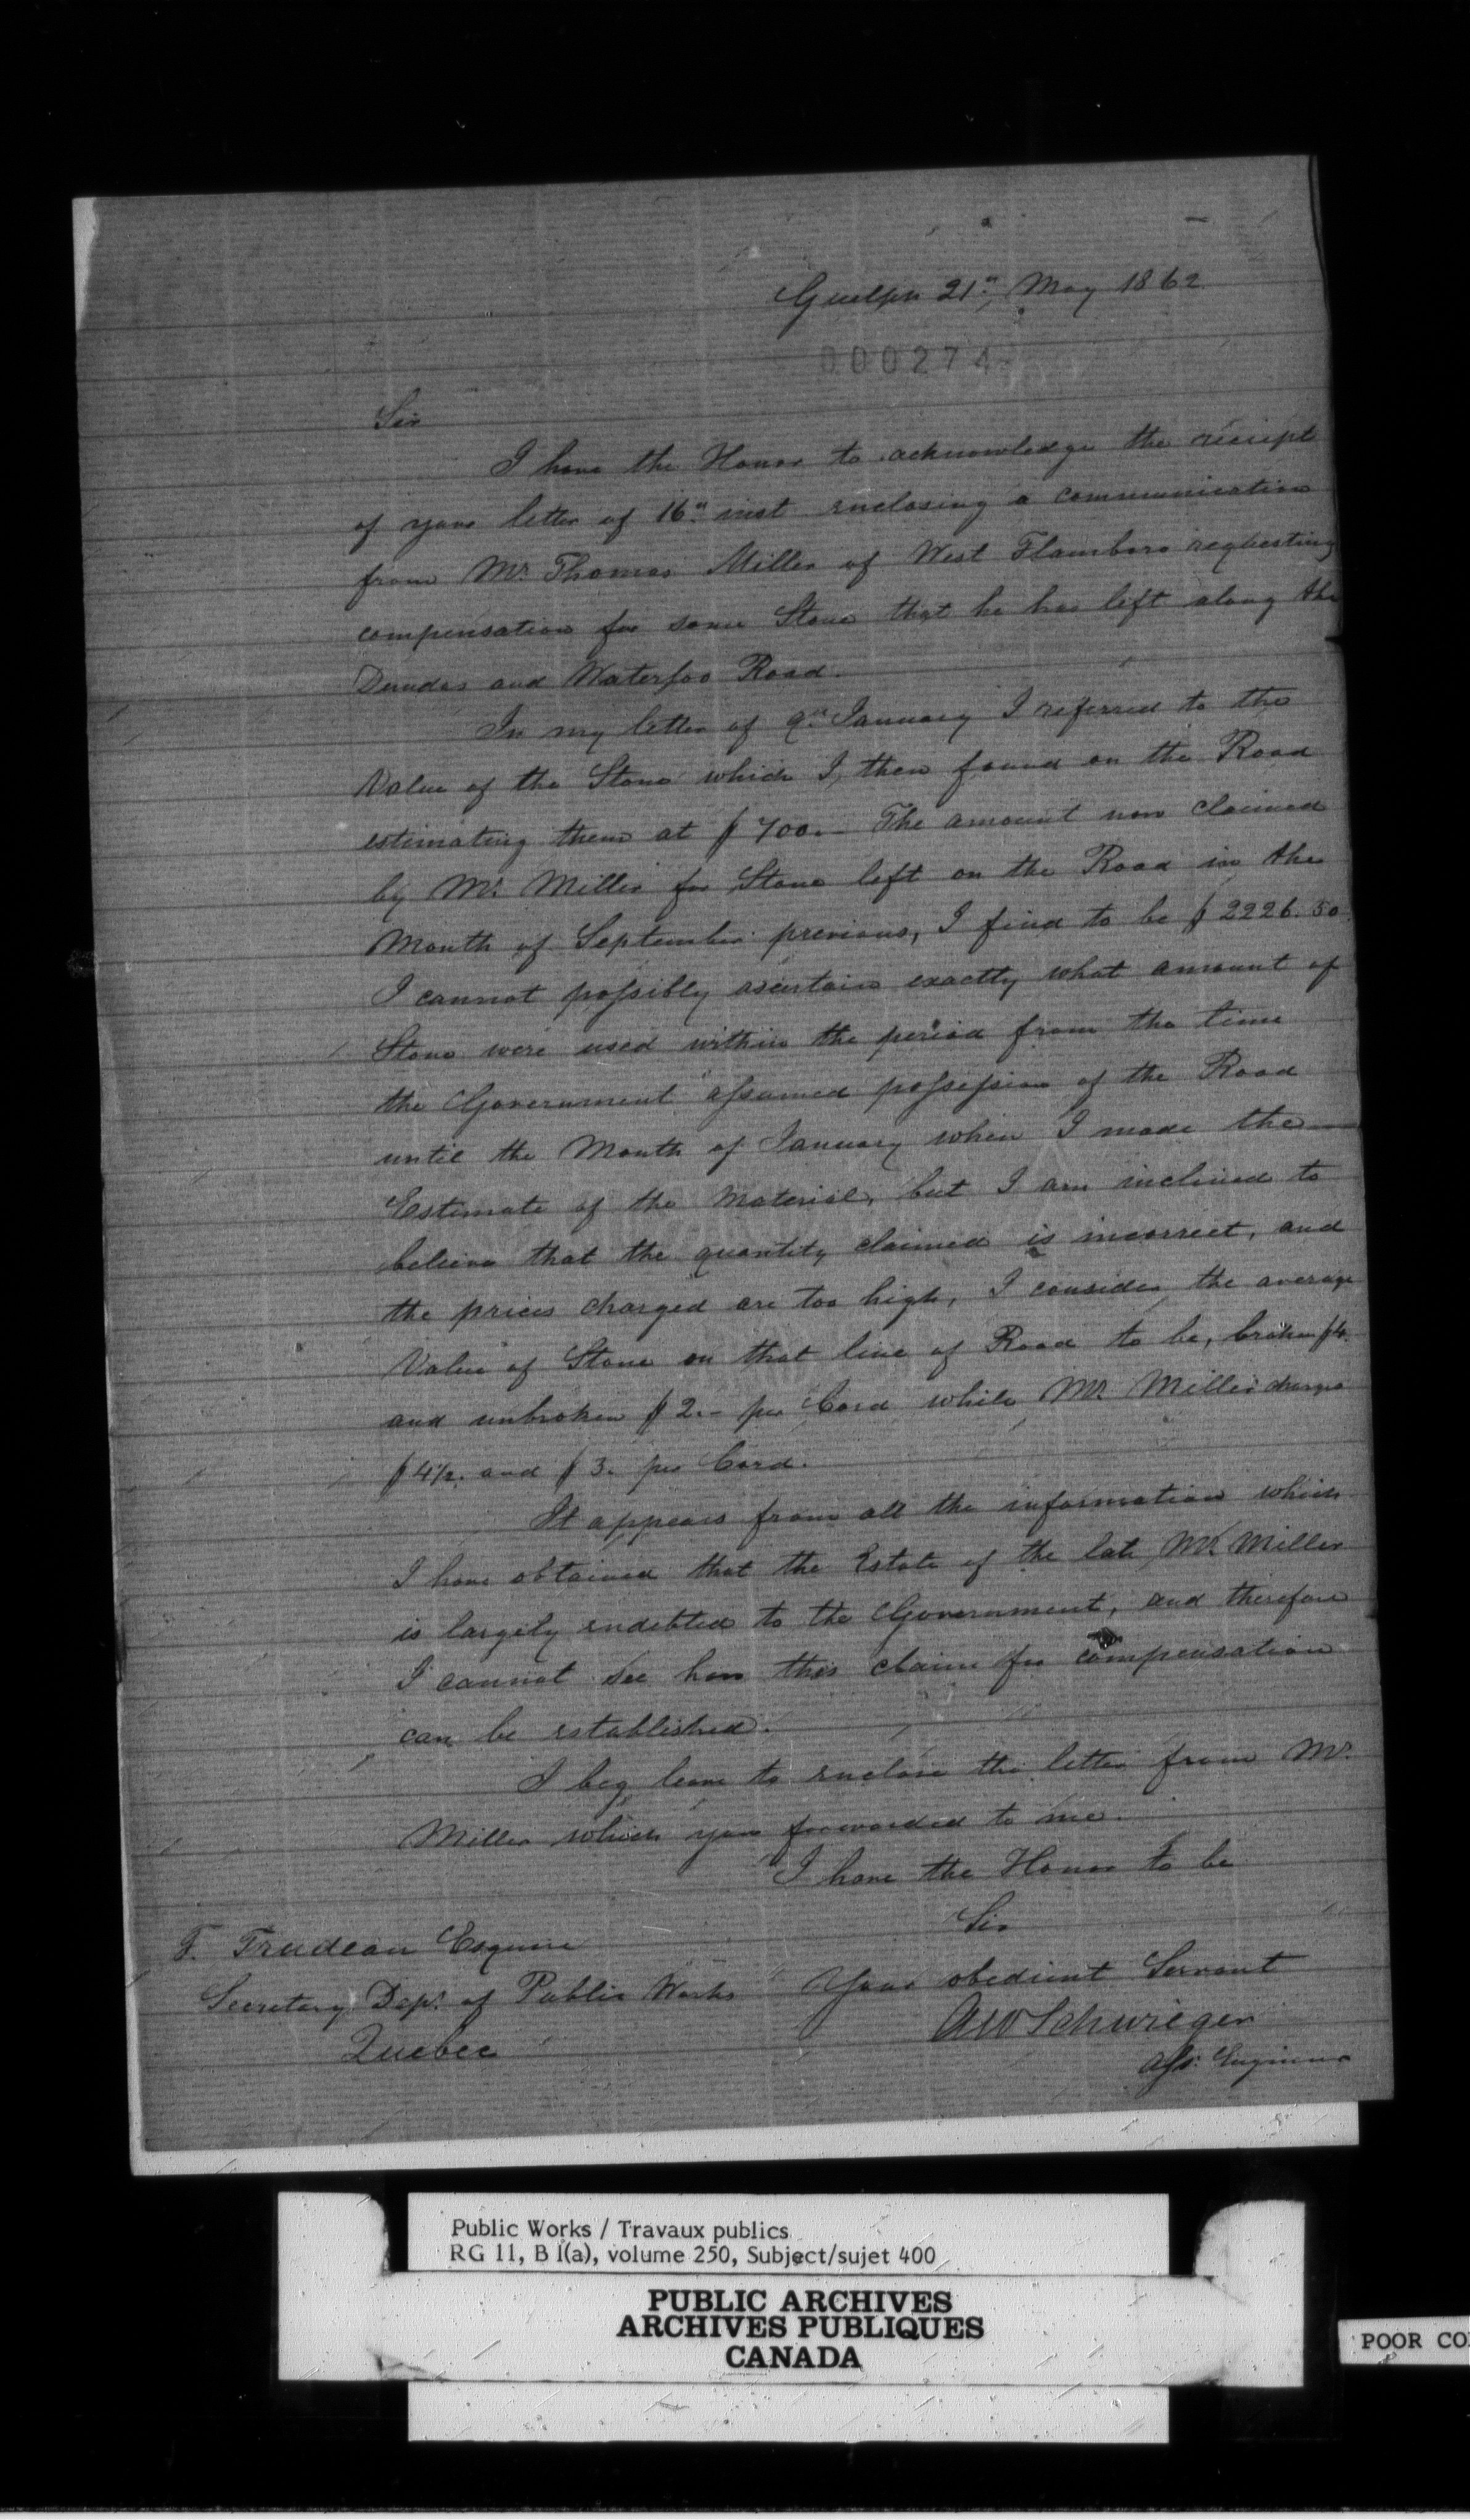 Guelph 21st May 1862
000274
Sir
I have the Honor to acknowledge the receipt
of your letter of 16th inst enclosing a communication
from Mr. Thomas Miller of West Flamboro requesting
compensation for some Stone that he has left along the
Dundas and Waterloo Road.
In my letter of 9th January I referred to the
Value of the Stone which I then found on the Road
estimating them at $700.– The amount now claimed
by Mr. Miller for Stone left on the Road in the
Month of September previous, I find to be $2226.50.
I cannot possibly ascertain exactly what amount of
Stone were used within the period from the time
the Government assumed possession of the Road
until the Month of January when I made the
Estimate of the Material, but I am inclined to
believe that the quantity claimed is incorrect, and
the prices charged are too high, I consider the average
Value of Stone on that line of Road to be, broken $4.
and unbroken $2.– per Cord while Mr. Miller charges
$4½. and $3. per Cord.
It appears from all the information which
I have obtained that the Estate of the late Mr. Miller
is largely endebted to the Government, and therefore
I cannot see how this claim for compensation
can be established.
I beg leave to enclose the letter from Mr.
Miller which you forwarded to me.
I have the Honor to be
Sir
Your obedient Servant
A W Schwieger
Asst. Engineer
T. Trudeau Esquire
Secretary Dept. of Public Works
Quebec
Public Works / Travaux publics
RG 11, B 1(a), volume 250, Subject/sujet 400
PUBLIC ARCHIVES
ARCHIVES PUBLIQUES
CANADA
POOR CO